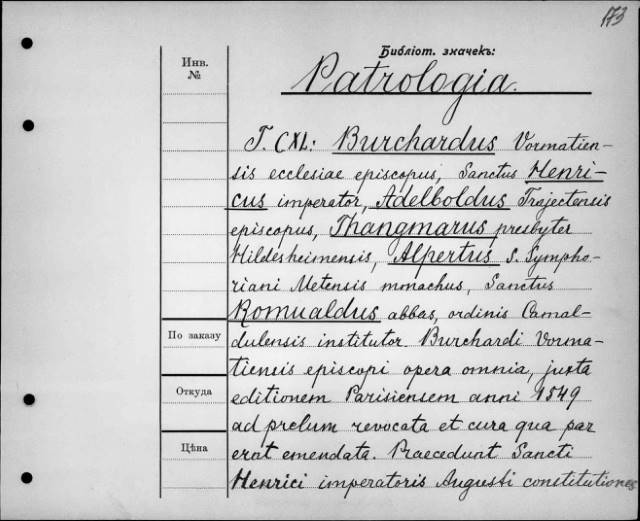 173
Библіот. значекъ:
Инв.
№
Patrologia.
T. CXL: Burchardus Vormatien-
sis ecclesiae episcopus, Sanctus Henri-
cus imperator, Adelboldus Trajectensis
episcopus, Thangmarus presbyter
Hildesheimensis, Alpertus S. Sympho-
riani Metensis monachus, Sanctus
Romualdus abbas, ordinis Camal-
По заказу
dulensis institutor. Burchardi Vorma-
tiensis episcopi opera omnia, juxta
Откуда
editionem Parisiensem anni 1549
ad prelum revocata et cura qua par
Цѣна
erat emendata. Praecedunt Sancti
Henrici imperatoris Augusti constitutiones